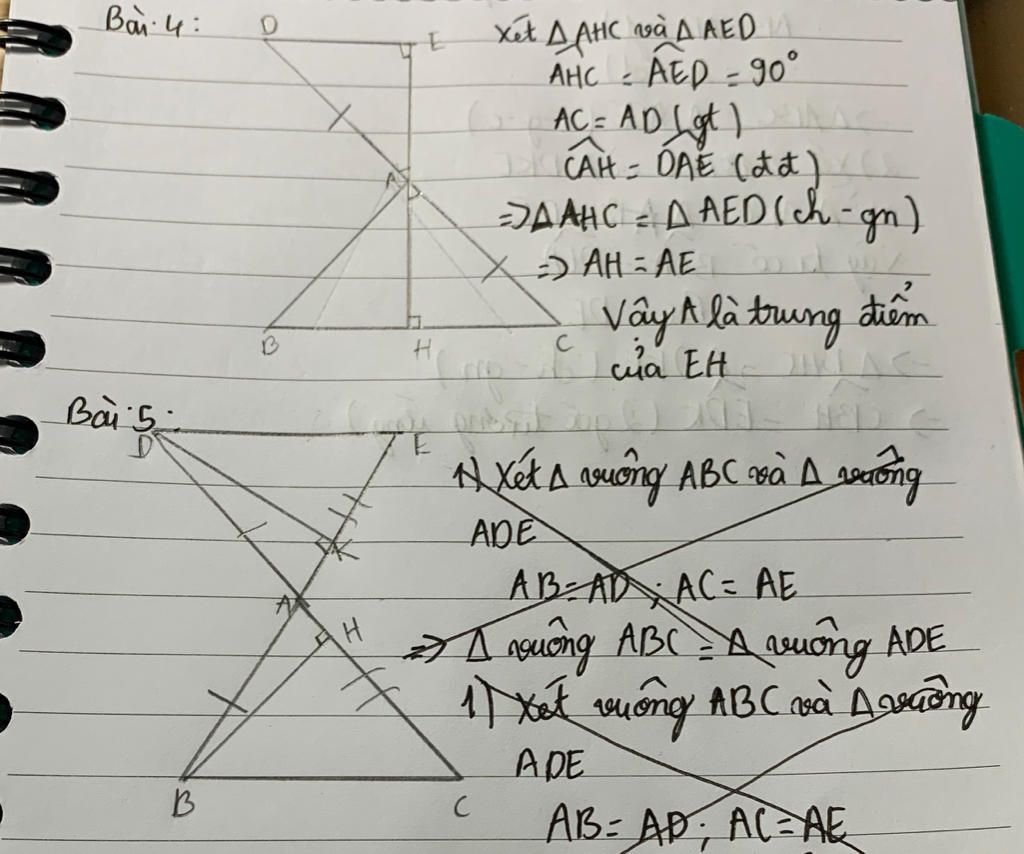 Bài 4:
D
E
A
B
H
C
Xét Δ AHC và Δ AED
AHC = AED = 90°
AC = AD (gt)
CAH = DAE (đđ)
=> Δ AHC = Δ AED (ch - gn)
=> AH = AE
Vậy A là trung điểm
của EH
Bài 5:
D
E
K
A
H
B
C
1) Xét Δ vuông ABC và Δ vuông
ADE
AB = AD ; AC = AE
=> Δ vuông ABC = Δ vuông ADE
1) Xét vuông ABC và Δ vuông
ADE
AB = AD ; AC = AE